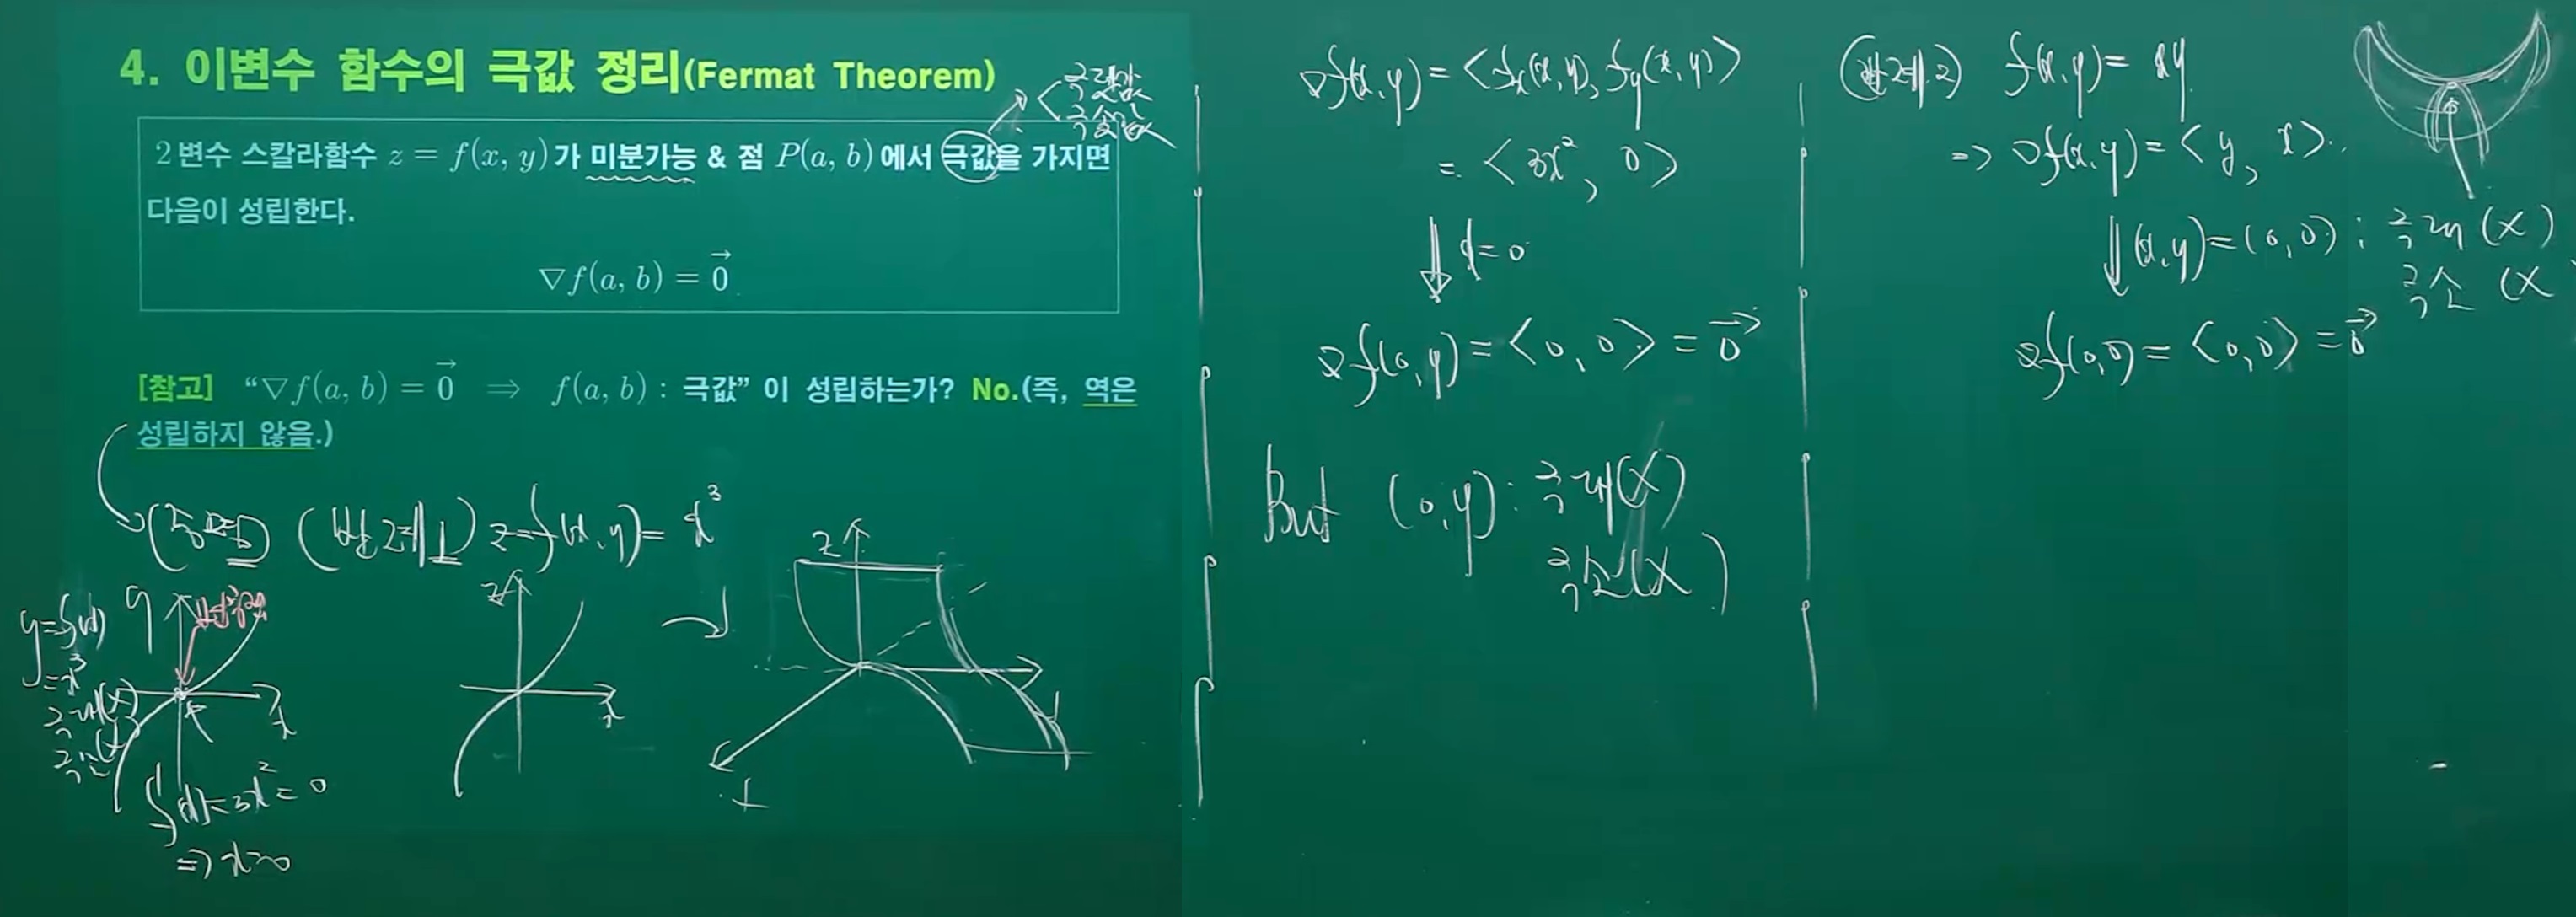 4. 이변수 함수의 극값 정리(Fermat Theorem)
극댓값
극솟값
2변수 스칼라함수 z = f(x, y)가 미분가능 & 점 P(a, b)에서 극값을 가지면
다음이 성립한다.
∇f(a, b) = 0⃗
[참고] "∇f(a, b) = 0⃗ ⇒ f(a, b) : 극값" 이 성립하는가? No.(즉, 역은
성립하지 않음.)
(증명) (반례1) z=f(x,y)= x³
y=f(x)
=x³
극대(X)
극소(X)
y
변곡점
x
f'(x)=3x²=0
=> x=0
z
x
z
y
x
∇f(x,y)= <fx(x,y), fy(x,y)>
= <3x², 0>
⇓ x=0
∇f(0,y)= <0, 0> = 0⃗
But (0,y): 극대(X)
극소(X)
(반례2) f(x,y)= xy
=> ∇f(x,y)= <y, x>
⇓ (x,y)=(0,0) : 극대 (X)
극소 (X
∇f(0,0)= <0,0> = 0⃗